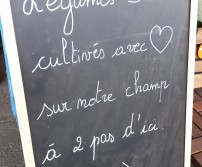 Légumes
cultivés avec ♡
sur notre champ
à 2 pas d'ici.